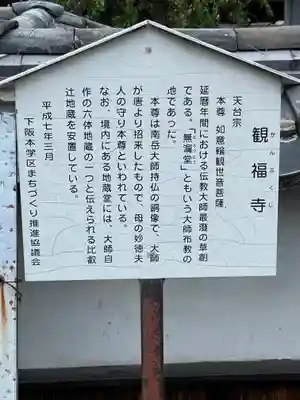 観福寺
かんふくじ
天台宗
本尊 如意輪観世音菩薩
延暦年間における伝教大師最澄の草創
である。「無漏堂」ともいう大師布教の
地であった。
本尊は南岳大師持仏の銅像で、大師
が唐より招来したもので、母の妙徳夫
人の守り本尊といわれている。
なお、境内にある地蔵堂には、大師自
作の六体地蔵の一つと伝えられる比叡
辻地蔵を安置している。
平成七年三月
下阪本学区まちづくり推進協議会